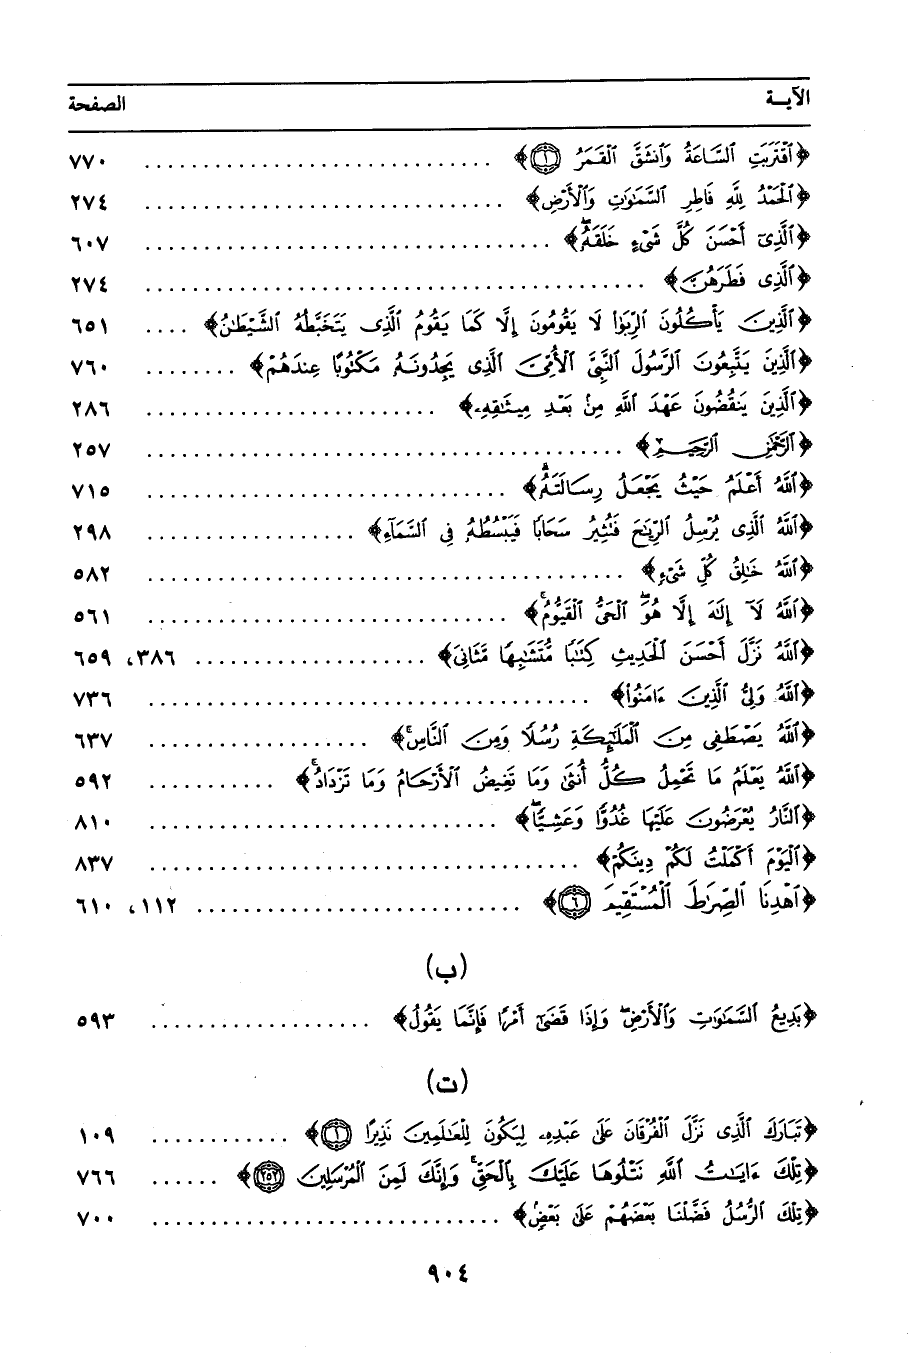 الآيـة الصفحة
﴿ٱقْتَرَبَتِ ٱلسَّاعَةُ وَٱنشَقَّ ٱلْقَمَرُ ١﴾ .............................. ٧٧٠
﴿ٱلْحَمْدُ لِلَّهِ فَاطِرِ ٱلسَّمَٰوَٰتِ وَٱلْأَرْضِ﴾ .............................. ٢٧٤
﴿ٱلَّذِىٓ أَحْسَنَ كُلَّ شَىْءٍ خَلَقَهُۥ﴾ .............................. ٦٠٧
﴿ٱلَّذِى فَطَرَهُنَّ﴾ .............................. ٢٧٤
﴿ٱلَّذِينَ يَأْكُلُونَ ٱلرِّبَوٰا۟ لَا يَقُومُونَ إِلَّا كَمَا يَقُومُ ٱلَّذِى يَتَخَبَّطُهُ ٱلشَّيْطَٰنُ﴾ .... ٦٥١
﴿ٱلَّذِينَ يَتَّبِعُونَ ٱلرَّسُولَ ٱلنَّبِىَّ ٱلْأُمِّىَّ ٱلَّذِى يَجِدُونَهُۥ مَكْتُوبًا عِندَهُمْ﴾ ........ ٧٦٠
﴿ٱلَّذِينَ يَنقُضُونَ عَهْدَ ٱللَّهِ مِنۢ بَعْدِ مِيثَٰقِهِۦ﴾ ......................... ٢٨٦
﴿ٱلرَّحْمَٰنِ ٱلرَّحِيمِ﴾ .............................. ٢٥٧
﴿ٱللَّهُ أَعْلَمُ حَيْثُ يَجْعَلُ رِسَالَتَهُۥ﴾ .............................. ٧١٥
﴿ٱللَّهُ ٱلَّذِى يُرْسِلُ ٱلرِّيَٰحَ فَتُثِيرُ سَحَابًا فَيَبْسُطُهُۥ فِى ٱلسَّمَآءِ﴾ .................. ٢٩٨
﴿ٱللَّهُ خَٰلِقُ كُلِّ شَىْءٍ﴾ .............................. ٥٨٢
﴿ٱللَّهُ لَآ إِلَٰهَ إِلَّا هُوَ ٱلْحَىُّ ٱلْقَيُّومُ﴾ .............................. ٥٦١
﴿ٱللَّهُ نَزَّلَ أَحْسَنَ ٱلْحَدِيثِ كِتَٰبًا مُّتَشَٰبِهًا مَّثَانِىَ﴾ .................... ٣٨٦، ٦٥٩
﴿ٱللَّهُ وَلِىُّ ٱلَّذِينَ ءَامَنُوا۟﴾ .............................. ٧٣٦
﴿ٱللَّهُ يَصْطَفِى مِنَ ٱلْمَلَٰٓئِكَةِ رُسُلًا وَمِنَ ٱلنَّاسِ﴾ ................... ٦٣٧
﴿ٱللَّهُ يَعْلَمُ مَا تَحْمِلُ كُلُّ أُنثَىٰ وَمَا تَغِيضُ ٱلْأَرْحَامُ وَمَا تَزْدَادُ﴾ ........... ٥٩٢
﴿ٱلنَّارُ يُعْرَضُونَ عَلَيْهَا غُدُوًّا وَعَشِيًّا﴾ .............................. ٨١٠
﴿ٱلْيَوْمَ أَكْمَلْتُ لَكُمْ دِينَكُمْ﴾ .............................. ٨٣٧
﴿ٱهْدِنَا ٱلصِّرَٰطَ ٱلْمُسْتَقِيمَ ٦﴾ ............................ ١١٢، ٦١٠
(ب)
﴿بَدِيعُ ٱلسَّمَٰوَٰتِ وَٱلْأَرْضِ وَإِذَا قَضَىٰٓ أَمْرًا فَإِنَّمَا يَقُولُ﴾ ................... ٥٩٣
(ت)
﴿تَبَارَكَ ٱلَّذِى نَزَّلَ ٱلْفُرْقَانَ عَلَىٰ عَبْدِهِۦ لِيَكُونَ لِلْعَٰلَمِينَ نَذِيرًا ١﴾ ............ ١٠٩
﴿تِلْكَ ءَايَٰتُ ٱللَّهِ نَتْلُوهَا عَلَيْكَ بِٱلْحَقِّ وَإِنَّكَ لَمِنَ ٱلْمُرْسَلِينَ ٢٥٢﴾ ...... ٧٦٦
﴿تِلْكَ ٱلرُّسُلُ فَضَّلْنَا بَعْضَهُمْ عَلَىٰ بَعْضٍ﴾ .............................. ٧٠٠
٩٠٤